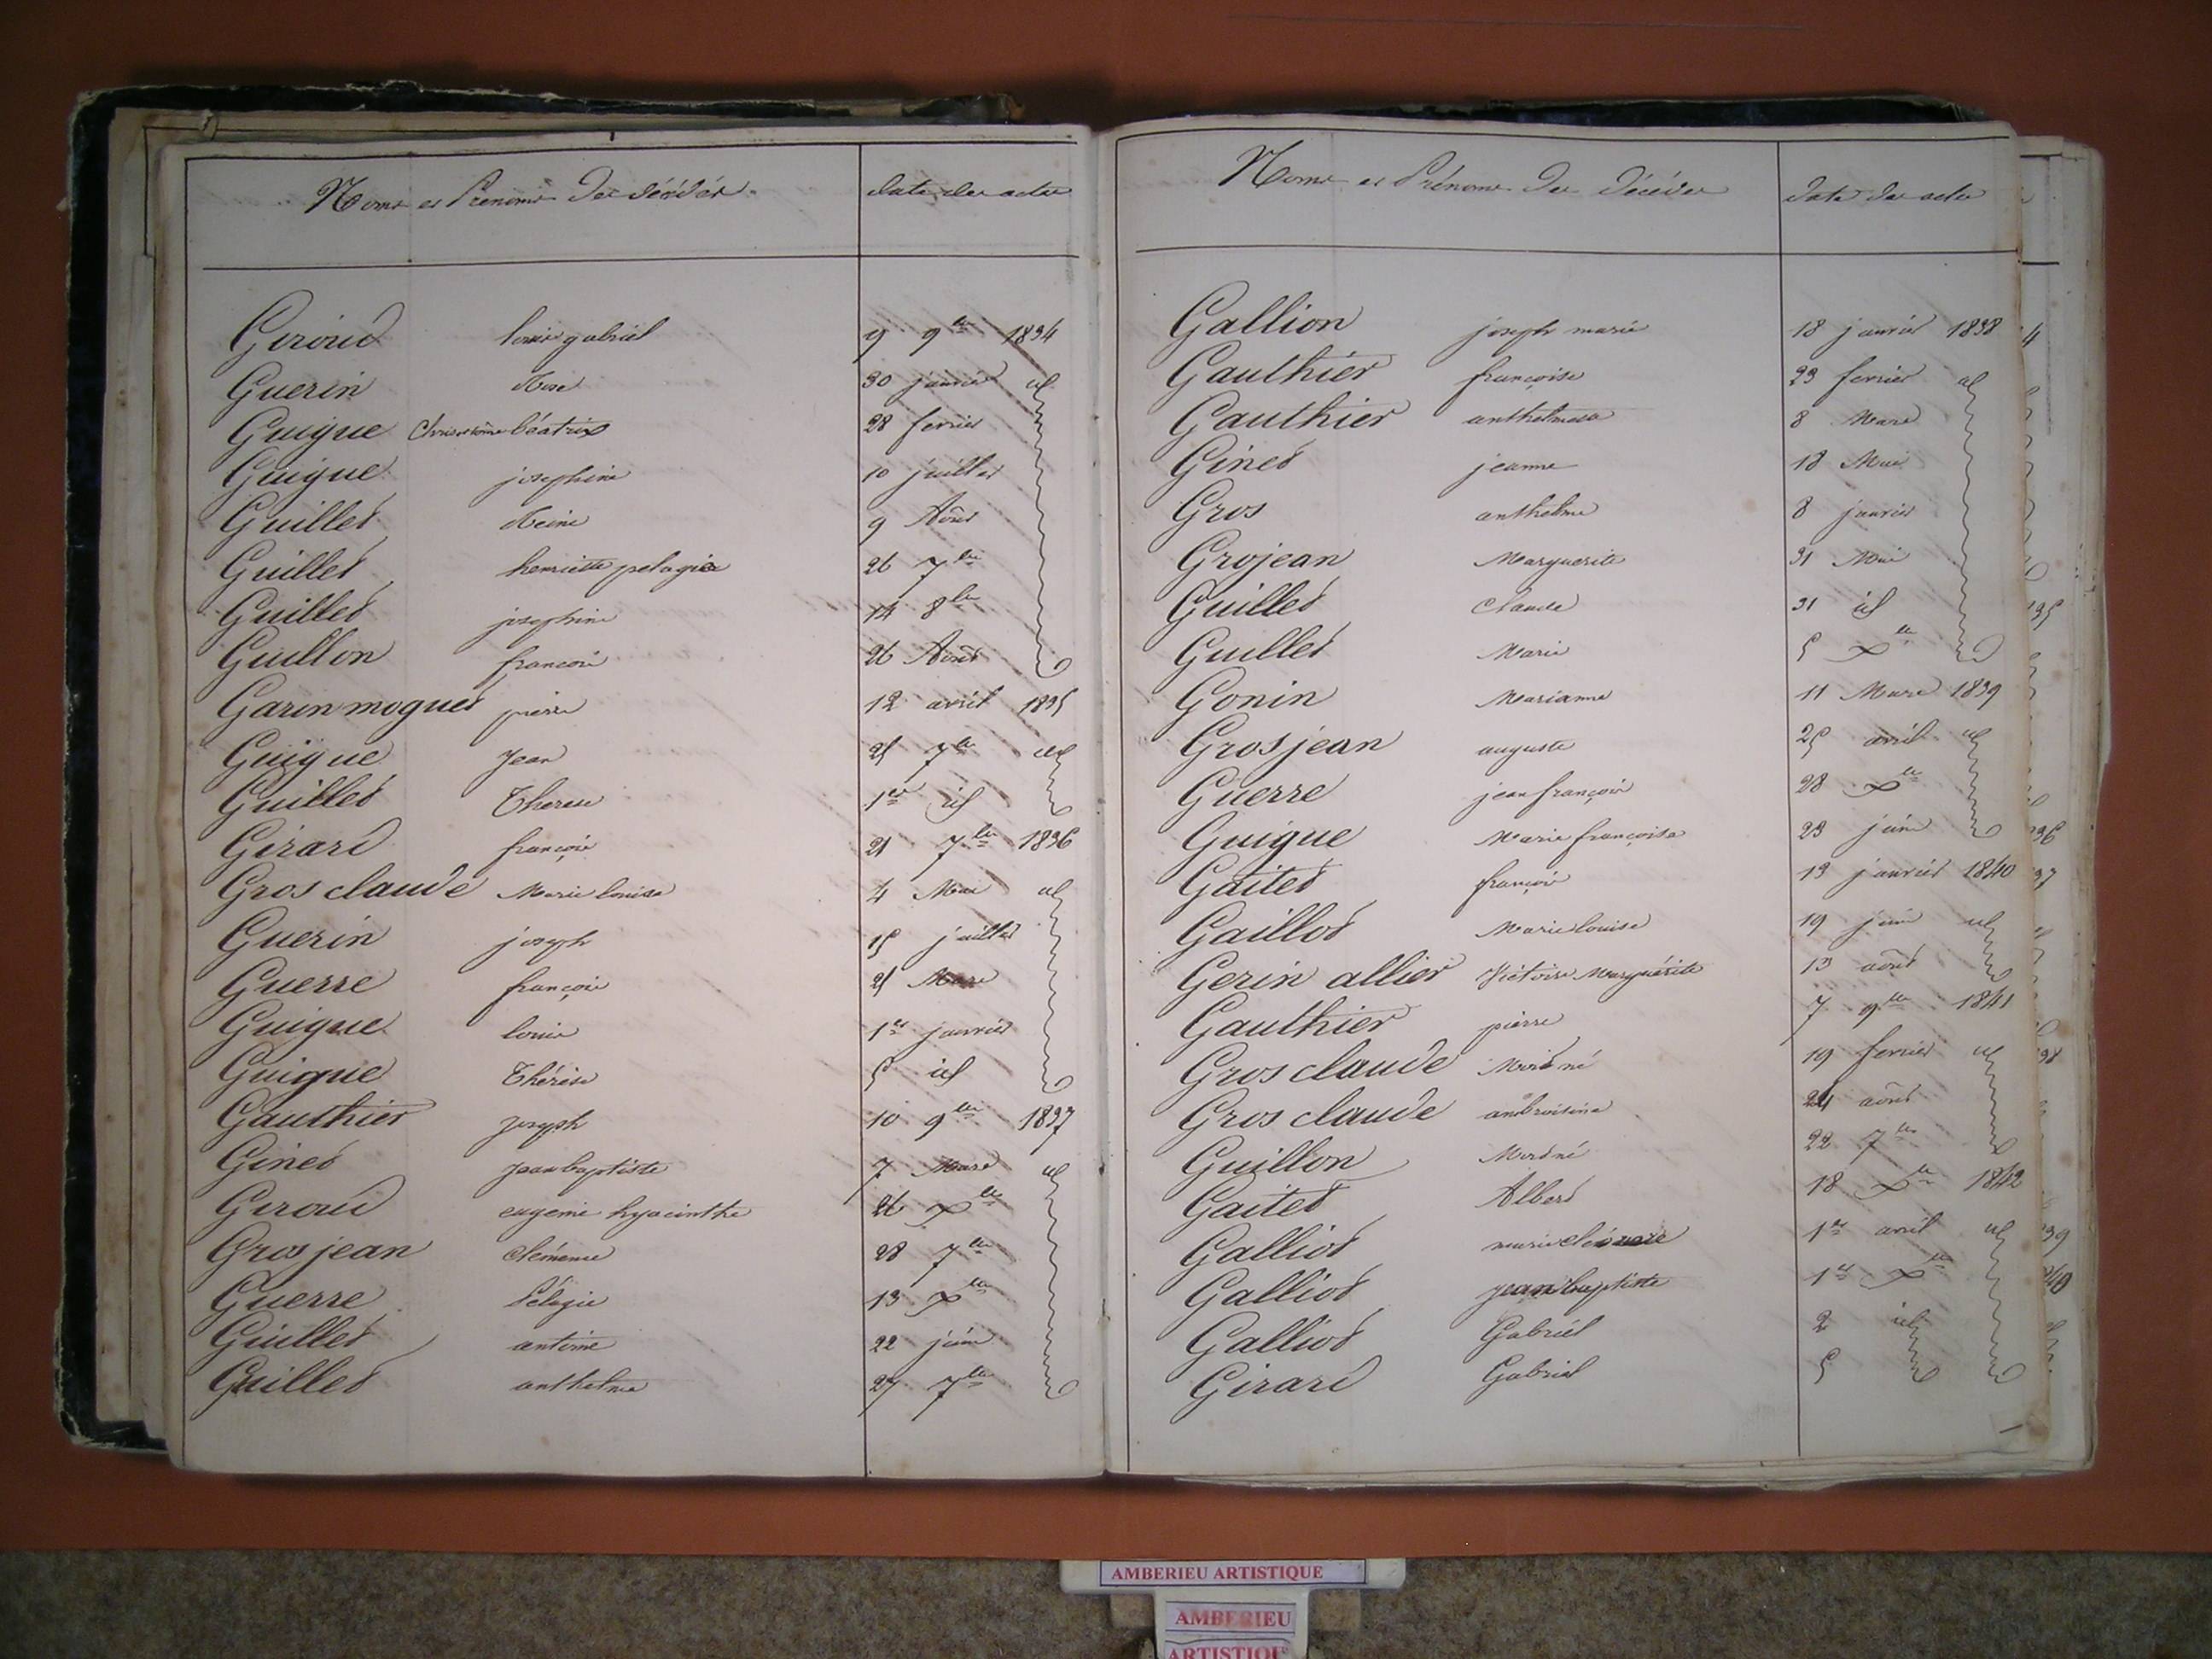 Noms et Prénoms des décédés date des actes
Geroud louis gabriel 9 9bre 1834
Guerin Rose 30 janvier id
Guigue Chrisostome béatrix 28 fevrier
Guigue josephine 10 juillet
Guillet Reine 9 Août
Guillet henriette pelagie 26 7bre
Guillet josephine 14 8bre
Guillon françois 26 Août
Garin moguet pierre 12 avril 1835
Guigue Jean 25 7bre id
Guillet Therese 1er id
Girard françois 21 7bre 1836
Gros claude Marie louise 4 Mai id
Guerin joseph 15 juillet
Guerre françois 25 Mars
Guigue louis 1er janvier
Guigue Thérèse 5 id
Gauthier Joseph 10 9bre 1837
Ginet jean baptiste 7 Mars id
Geroud eugenie hyacinthe 26 Xbre
Gros jean Clémence 28 7bre
Guerre Pélagie 13 Xbre
Guillet antoine 22 juin
Guillet anthelme 27 7bre
Noms et Prénoms des décédés date des actes
Gallion joseph marie 18 janvier 1838
Gauthier françoise 23 fevrier id
Gauthier 8 Mars
Ginet jeanne 18 Mai
Gros anthelme 8 janvier
Grojean Marguerite 31 Mai
Guillet Claude 31 id
Guillet Marie 5 Xbre
Gonin Marianne 11 Mars 1839
Gros jean auguste 25 avril id
Guerre jean françois 28 Xbre
Guigue Marie françoise 23 juin
Gaitet françois 13 janvier 1840
Gaillot Marie louise 19 juin id
Gerin allier Victoire Marguérite 13 août
Gauthier pierre 7 9bre 1841
Gros claude Mort né 19 fevrier id
Gros claude ambroisine 24 août
Guillon Mort né 22 7bre
Gaitet Albert 18 Xbre 1842
Galliot marie 1er avril id
Galliot jean baptiste 1er Xbre
Galliot Gabriel 2 id
Girard Gabriel 5
AMBERIEU ARTISTIQUE
AMBERIEU
ARTISTIQUE